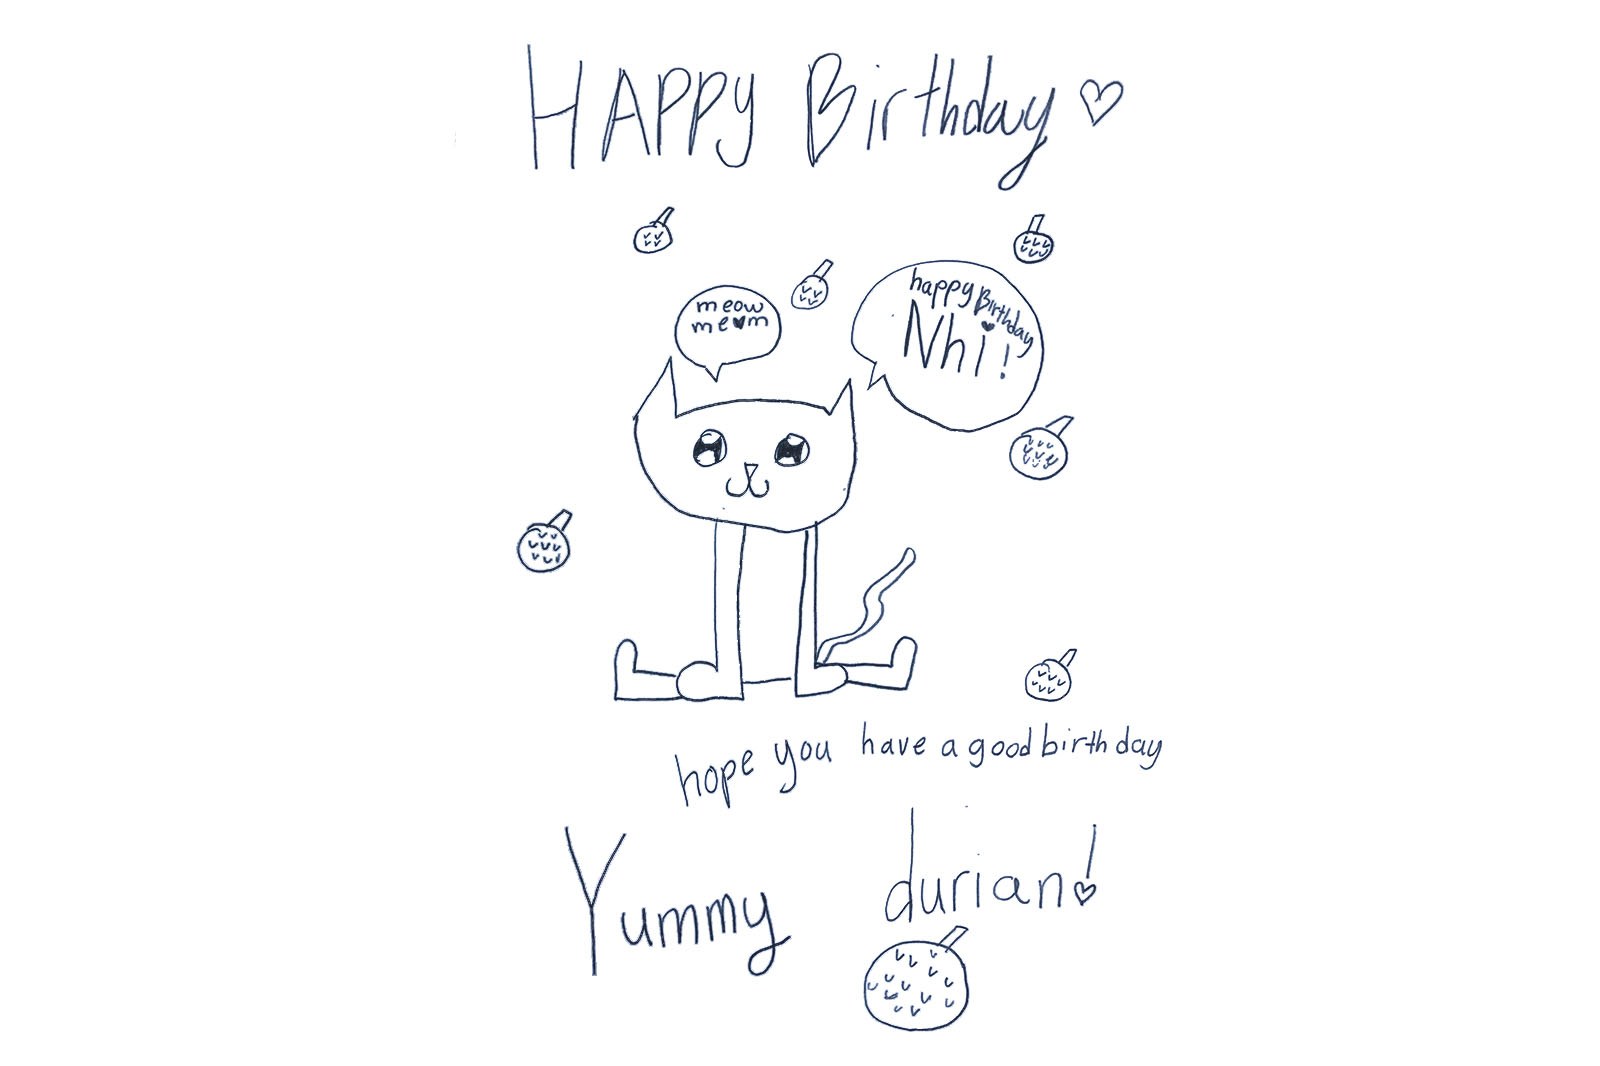 HAPPy Birthday ♡
meow
me♥m
happy Birthday
Nhi!
hope you have a good birthday
Yummy durian!